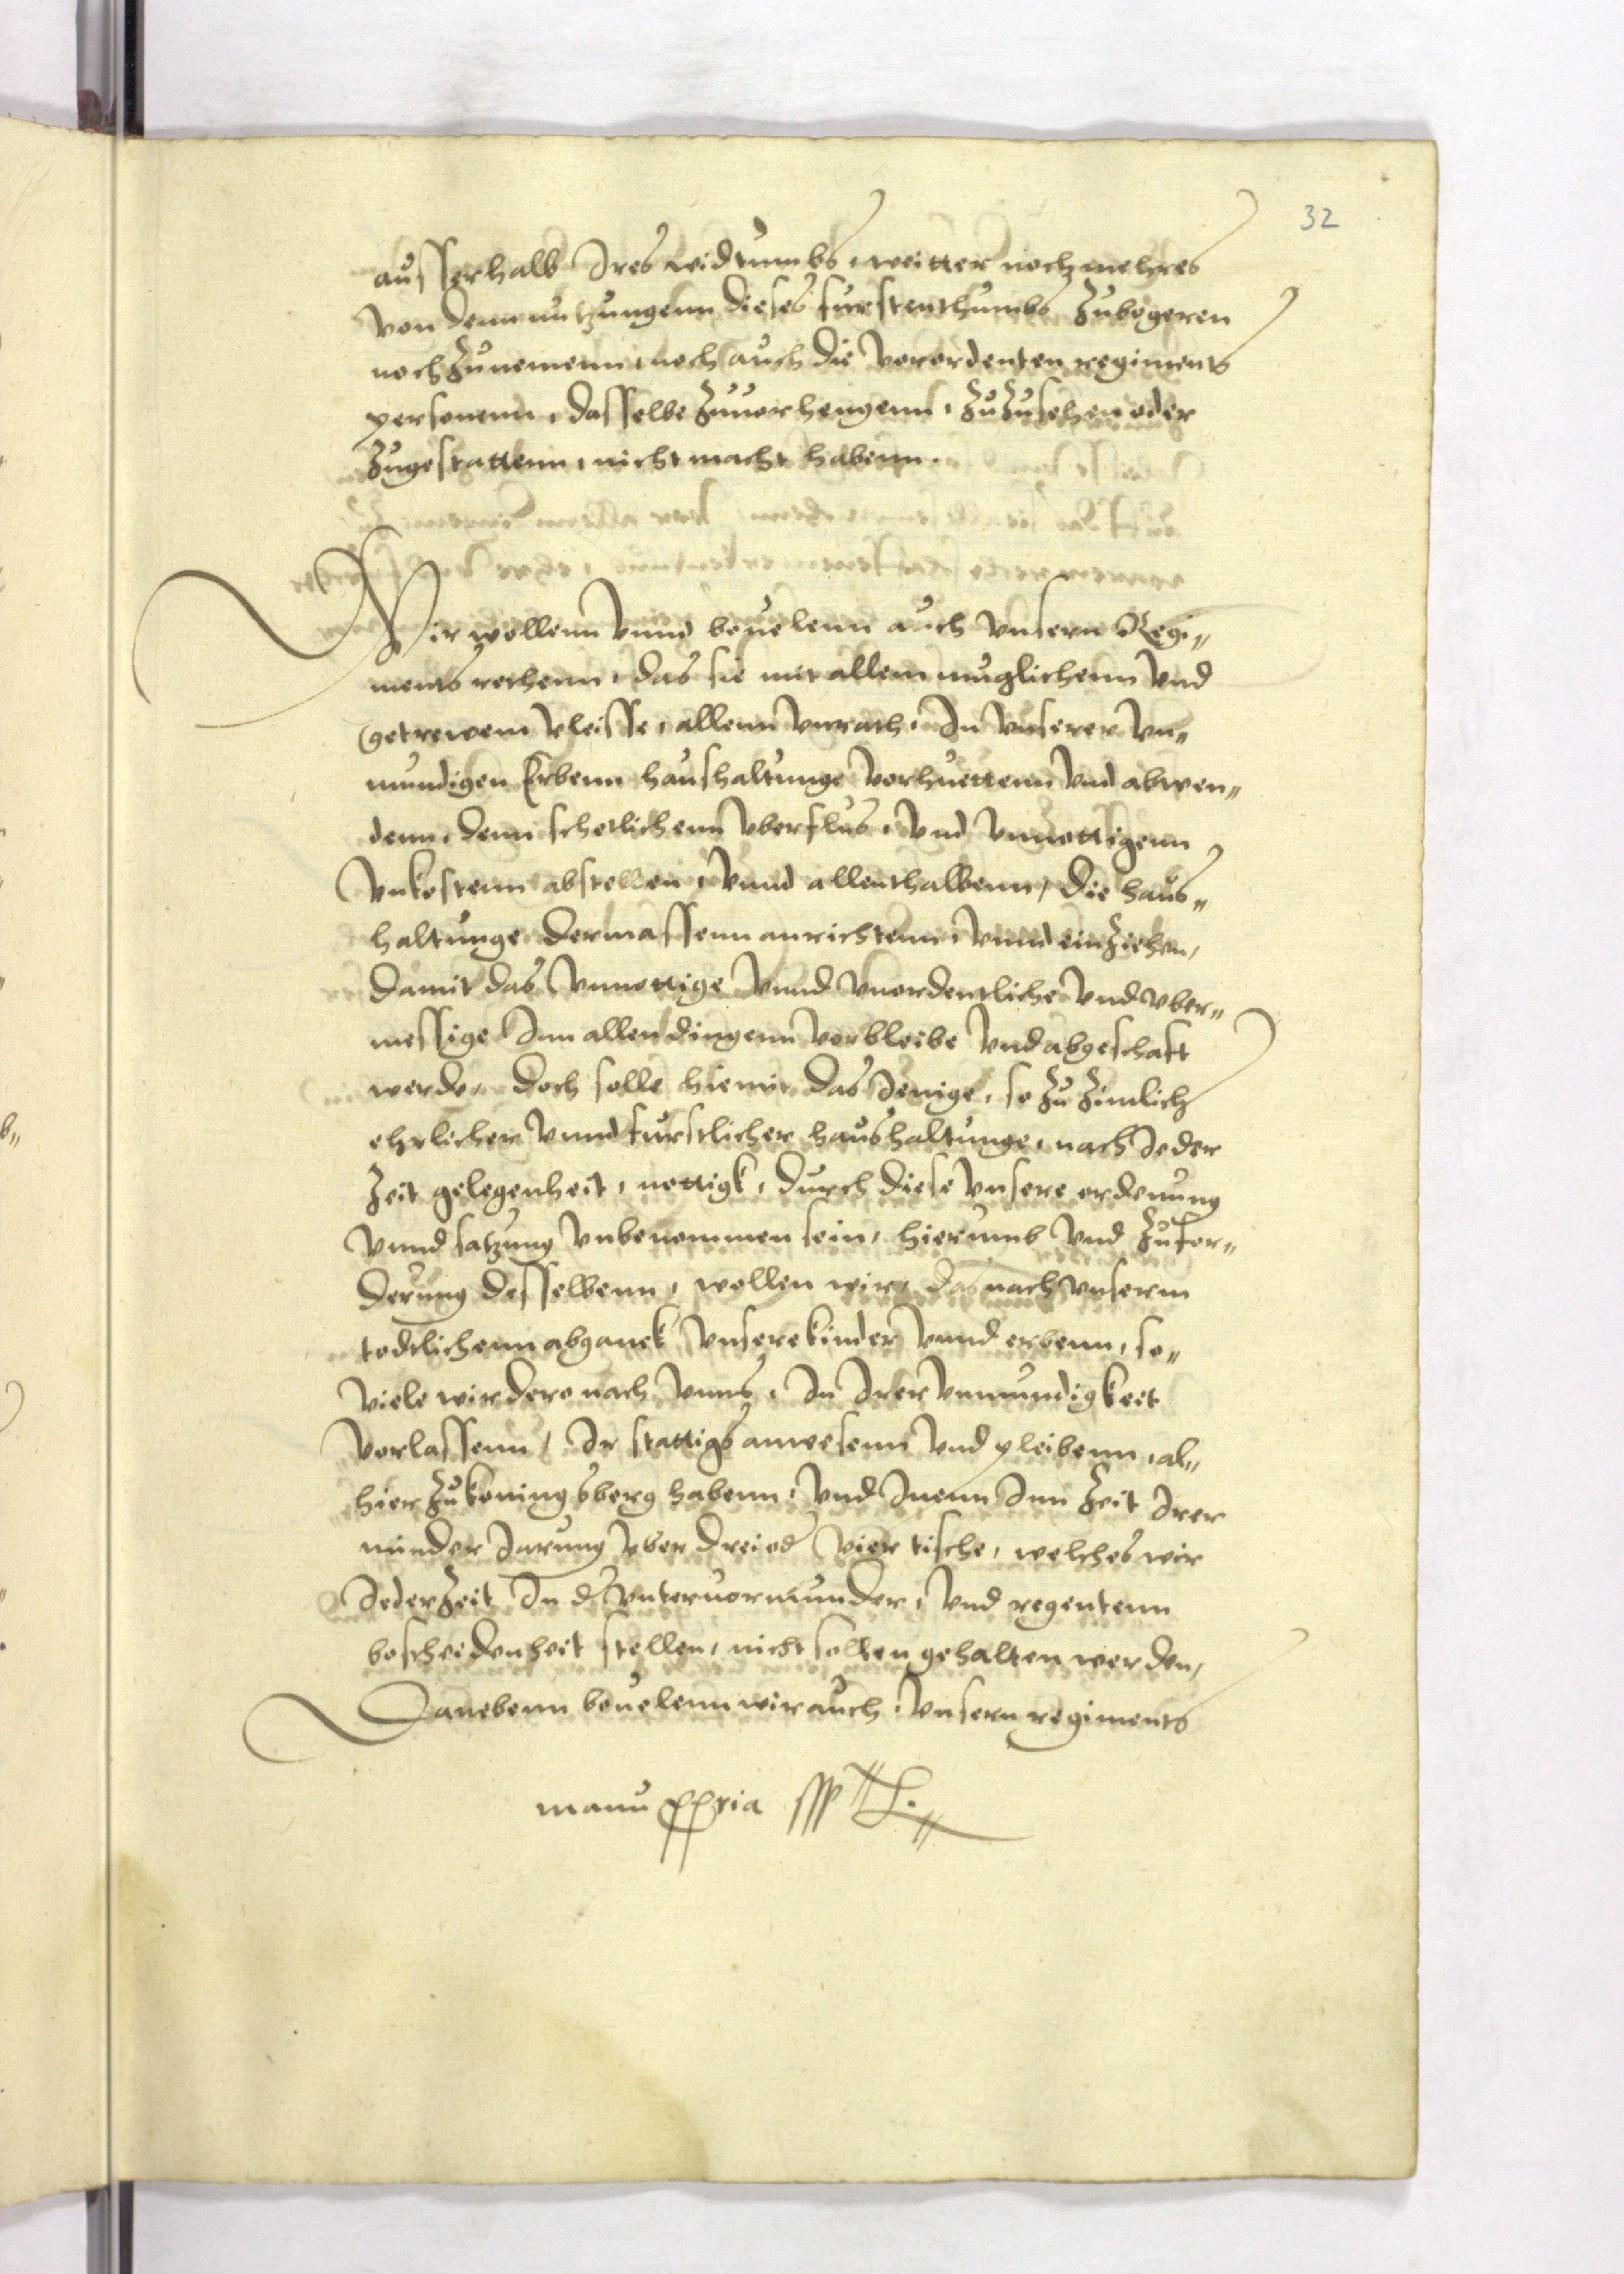 32
ausserhalb Ires widtumbs, weitter noch mehres
von denn nutzungenn dieses furstenthumbs zubegeren
noch zunemenn, noch auch die verordenten regiments
personenn, dasselbe zuuorhengenn, zuzusehen oder
zugestattenn, nicht macht habenn.
Wir wollenn vnnd beuelenn auch vnsern Regi„
ments rethenn, das sie mit allem muglichenn vnd
getrewem vleisse, allenn vnrath, In vnserer vn„
mundigen Erbenn haushaltunge vorhuettenn vnd abwen„
denn, denn schetlichenn vberflus, vnd vnnottigenn
vnkostenn abstellen, vnnd allenthalbenn, die haus„
haltunge dermassenn anrichtenn, vnnd einziehen,
damit das vnnottige vnnd vnordentliche vnd vber„
messige Inn allen dingenn vorbleibe vnd abgeschaft
werde, doch solle hiemit das Jenige, so zu zimlich
ehrlicher vnnd furstlicher haushaltunge, nach Jeder
Zeit gelegenheit, nottigk, durch diese vnsere ordenung
vnnd satzung vnbenommen sein, hierumb vnd zu for„
derung desselbenn, wollen wir, das nach vnserm
todtlichenn abganck vnsere kinder vnnd erbenn, so„
viele wir dere nach vnns, In Irer vnmundigkeit
vorlassenn, Ir stattigs anwesenn vnd pleibenn, al„
hier zu koningsberg habenn, vnd Inenn Inn zeit Irer
minder Jarung vber drei od vier tische, welches wir
Jederzeit In d vntervormunder, vnd regentenn
bescheidenheit stellen, nicht sollen gehalten werden,
Danebenn beuelenn wir auch, vnsern regiments
manu ppria sssp